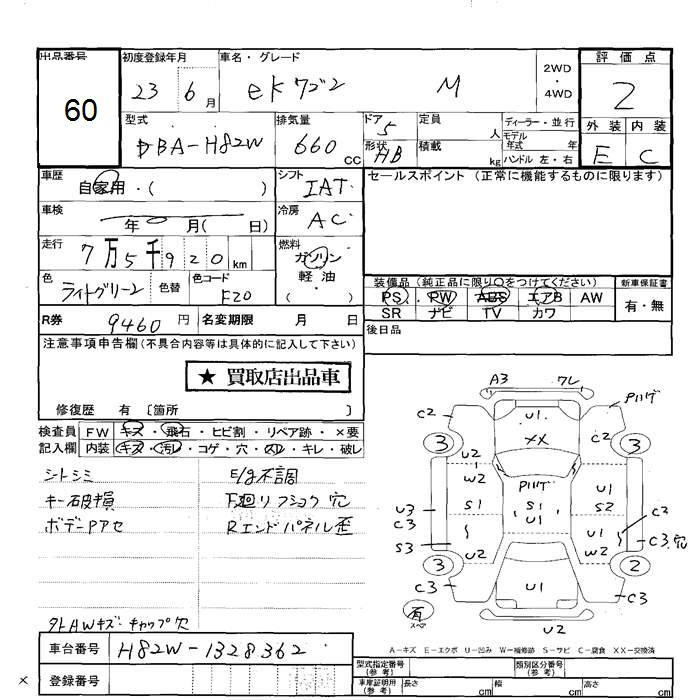 出品番号
60
初度登録年月
23 6 月
車名・グレード
ek ワゴン M
2WD
・
4WD
評価点
2
外装 内装
E C
型式
DBA-H82W
排気量
660 cc
ドア 5
形状 HB
定員 人
積載 kg
ディーラー・並行
モデル
年式 年
ハンドル 左・右
車歴
自家用・( )
シフト
IAT
セールスポイント (正常に機能するものに限ります)
車検
年 月( 日)
冷房
AC
走行
7万5千920km
燃料
ガソリン
軽・油
( )
色
ライトグリーン
色替
色コード
F20
装備品(純正品に限り○をつけてください)
PS・PW・ABS・エアB AW
SR ナビ TV カワ
新車保証書
有・無
R券 9460 円
名変期限 月 日
後日品
注意事項申告欄(不具合内容等は具体的に記入して下さい)
★ 買取店出品車
修復歴 有 〔箇所 〕
検査員
記入欄
FW キズ・飛石・ヒビ割・リペア跡・×要
内装 キズ・汚レ・コゲ・穴・スレ・キレ・破レ
シートシミ
キー破損
ボデーアセ
E/g不調
下廻リフショク穴
Rエンドパネル歪
外AWキズ・キャップ欠
A3 ワレ
C2 U1 C2 PハゲU
3 XX 3
U2
W2 Pハゲ U1
S1 S1 S2
U1
U3
C3 C2
S3 U2 U1
W2 C3穴
3 2
C3 U1 C3
有
スペア
U2
A-キズ E-エクボ U-凹み W-補修跡 S-サビ C-腐食 XX-交換済
車台番号 H82W-1328362
登録番号
型式指定番号
(参考)
類別区分番号
(参考)
車庫証明用
(参考)
長さ cm 幅 cm 高さ cm
×